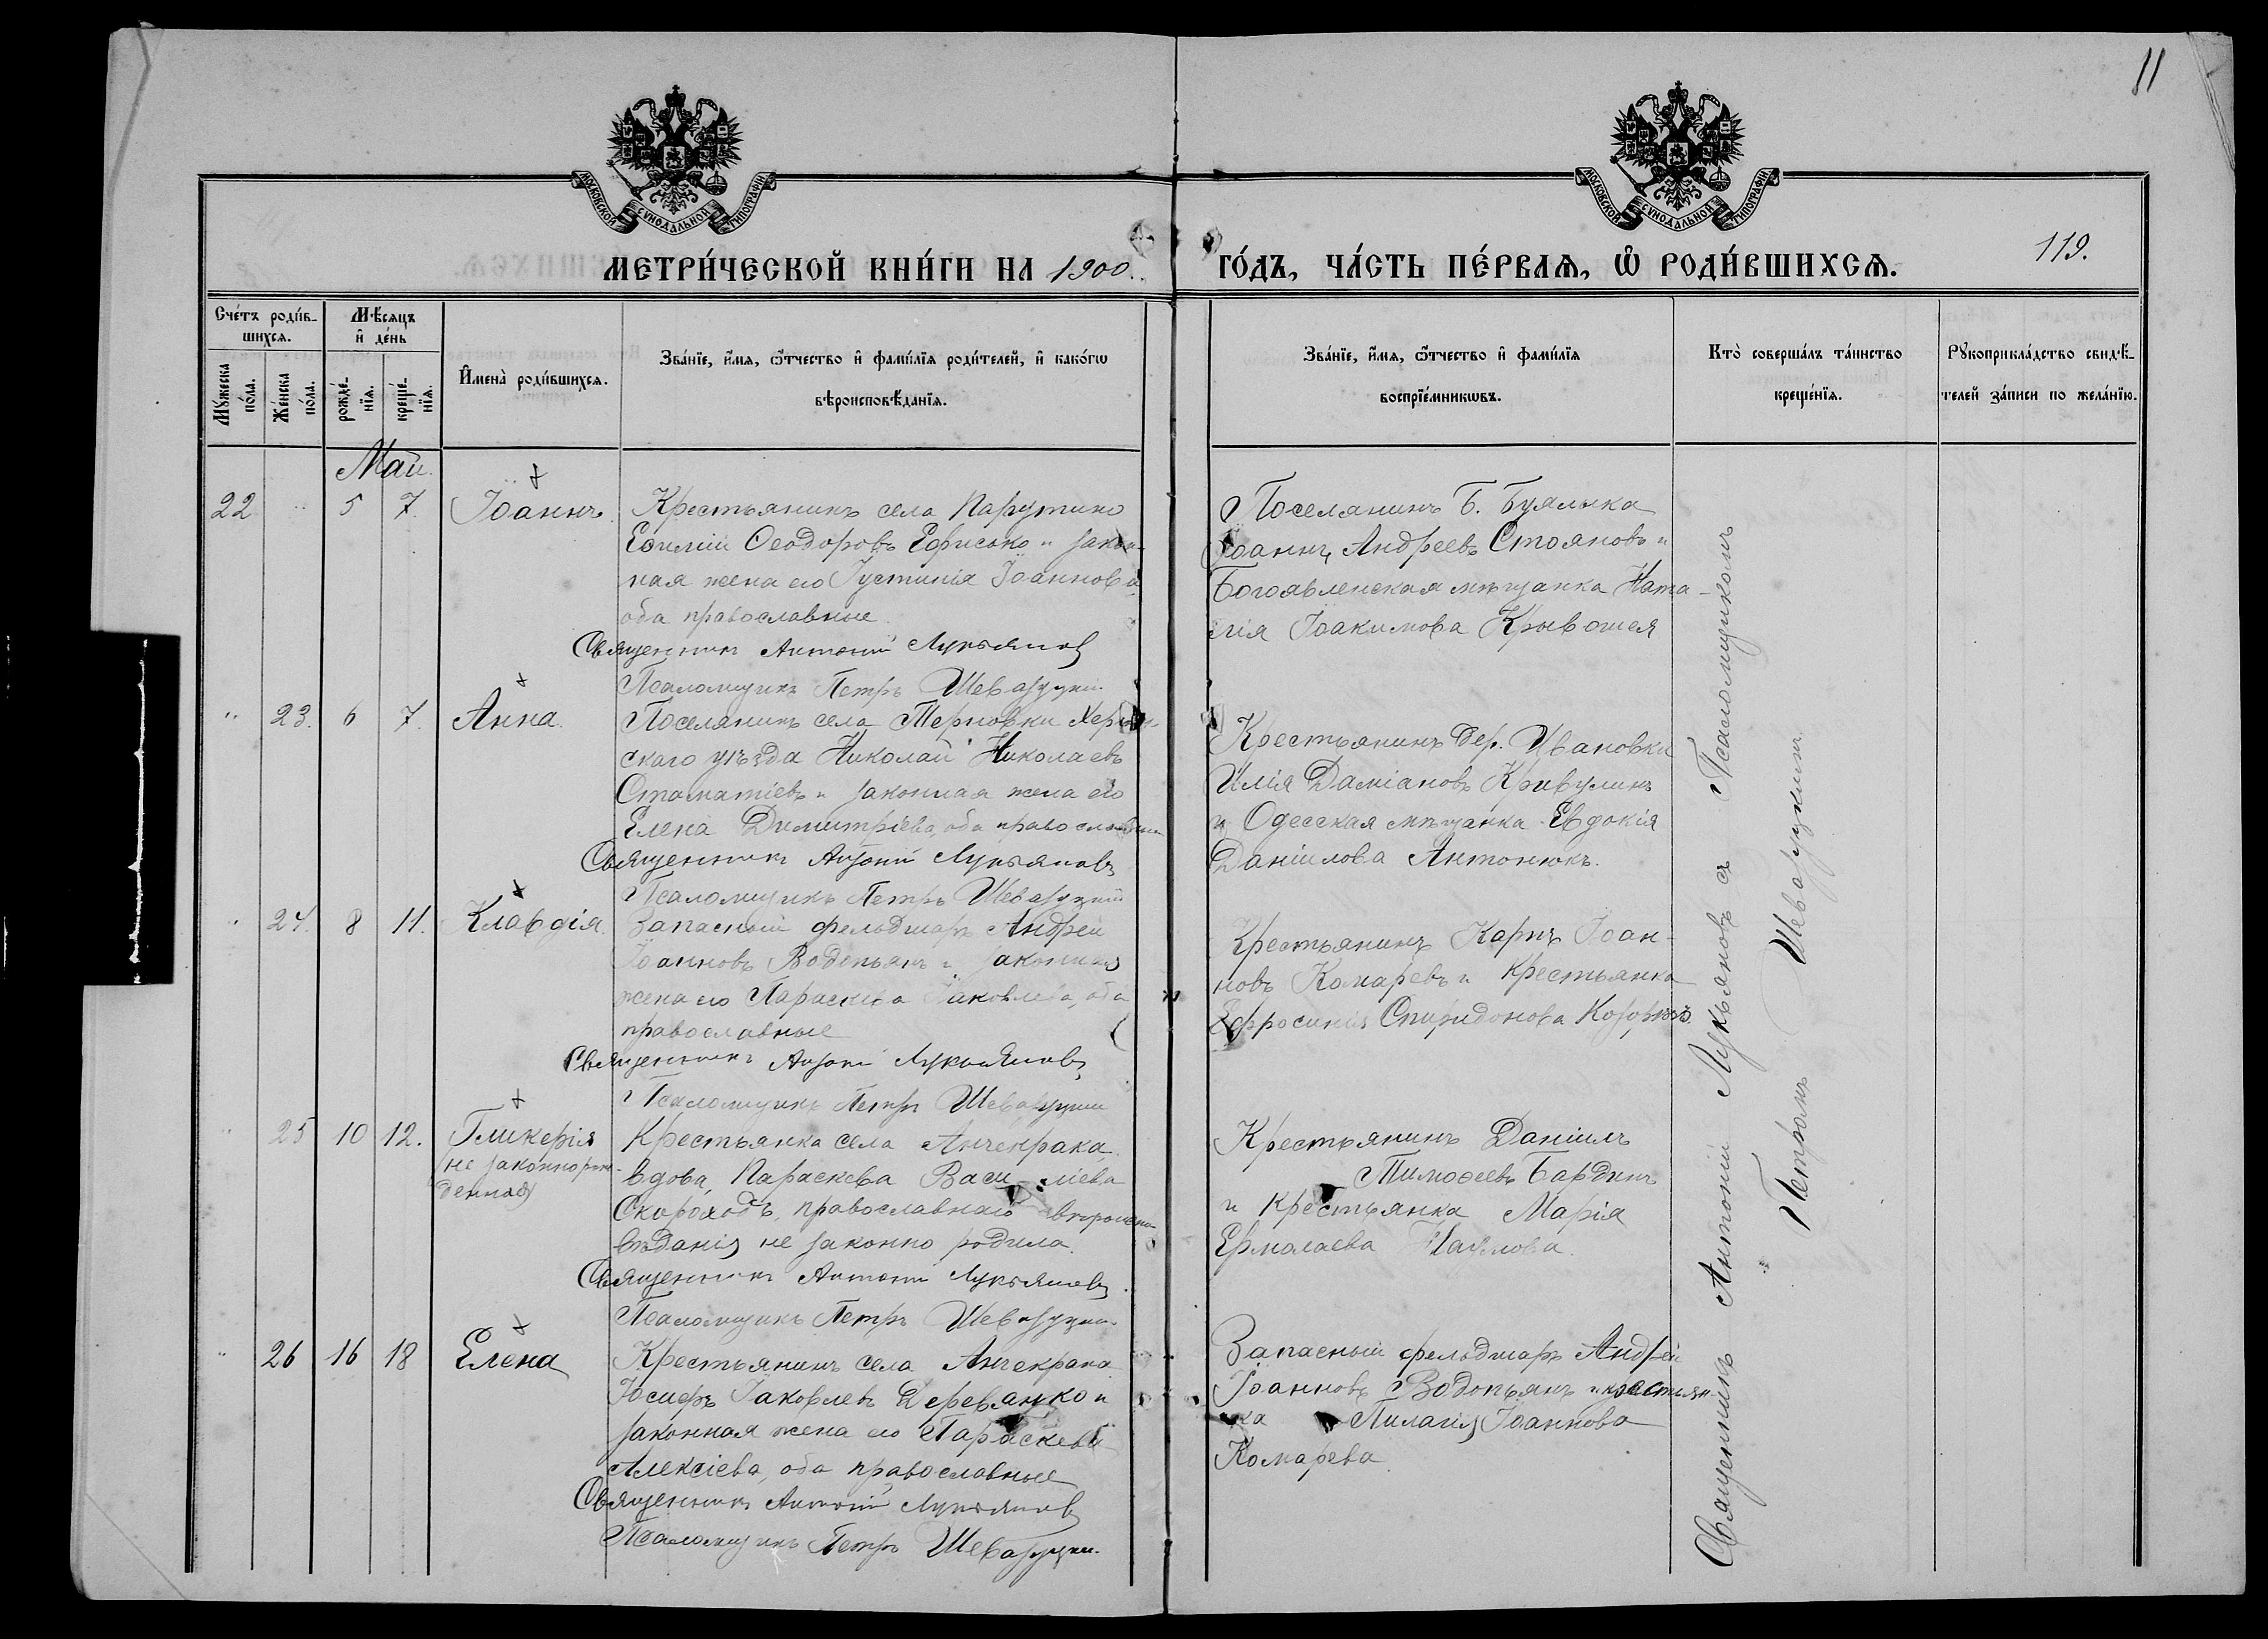 11
МОСКОВСКОЙ СѴНОДАЛЬНОЙ ТИПОГРАФІИ
МОСКОВСКОЙ СѴНОДАЛЬНОЙ ТИПОГРАФІИ
МЕТРИ́ЧЕСКОЙ КНИ́ГИ НА 1900 ГО́ДЪ, ЧА́СТЬ ПЕ́РВАѦ, Ѡ҆ РОДИ́ВШИХСѦ.
119.
Сче́тъ роди́в-
шихсѧ.
Мꙋжеска по́ла.
Же́нска по́ла.
Мѣ́сѧцъ
и҆ де́нь
рожде́-нїѧ.
креще́-нїѧ.
И҆мена̀ роди́вшихсѧ.
Зва́нїе, и҆́мѧ, ѻ҆́тчество и҆ фами́лїѧ роди́телей, и҆ како́гѡ
вѣроисповѣ́данїѧ.
Зва́нїе, и҆́мѧ, ѻ҆́тчество и҆ фами́лїѧ
воспрїе́мникѡвъ.
Кто̀ соверша́лъ та́инство
креще́нїѧ.
Рꙋкоприкла́дство свидѣ́-
телей за́писи по жела́нїю.
Май
22 " 5 7 Іоаннъ
Крестьянинъ села Парутино
Ефимій Ѳеодоровъ и закон-
ная жена его Іустинія Іоаннова
оба православные
Священникъ Антоній Лукьянов
Псаломщикъ Петръ
Поселянинъ Б. Буялыка
Іоаннъ Андреевъ Стояновъ и
Богоявленская мѣщанка Ната-
лія Іоакимова Крывошея
" 23. 6 7. Анна.
Поселянинъ села Терновки Херсон-
скаго уѣзда Николай Николаевъ
Стаматіевъ и законная жена его
Елена Димитріева, оба православные
Священникъ Антоній Лукьяновъ
Псаломщикъ Петръ
Крестьянинъ дер. Ивановки
Илія Даміановъ Кривулинъ
и Одесская мѣщанка Евдокія
Даніилова Антонюкъ.
" 24. 8 11. Клавдія.
Запасный фельдшаръ Андрей
Іоанновъ Водопьянъ и законная
жена его Параскева Іаковлева, оба
православные
Священникъ Антоній Лукьяновъ
Псаломщикъ Петръ
Крестьянинъ Карпъ Іоан-
новъ Комаревъ и крестьянка
Ефросинія Спиридонова
" 25 10 12. Гликерія
(не законнорож-
денная)
Крестьянка села Анчекрака
вдова, Параскева Васи-ліева
Скороходъ, православнаго вѣроиспо-
вѣданія не законно родила.
Священникъ Антоній Лукьяновъ
Псаломщикъ Петръ
Крестьянинъ Даніилъ
Тимоѳеевъ Бардинъ
и крестьянка Марія
Ермолаева Наумова.
" 26 16 18 Елена
Крестьянинъ села Анчекрака
Іосифъ Іаковлевъ Деревянко и
законная жена его Параскева
Алексіева, оба православные
Священникъ Антоній Лукьянов
Псаломщикъ Петръ
Запасный фельдшаръ Андрей
Іоанновъ Водопьянъ и крестьян-
ка Пилагія Іоаннова
Комарева.
Священникъ Антоній Лукьяновъ съ Псаломщикомъ
Петромъ